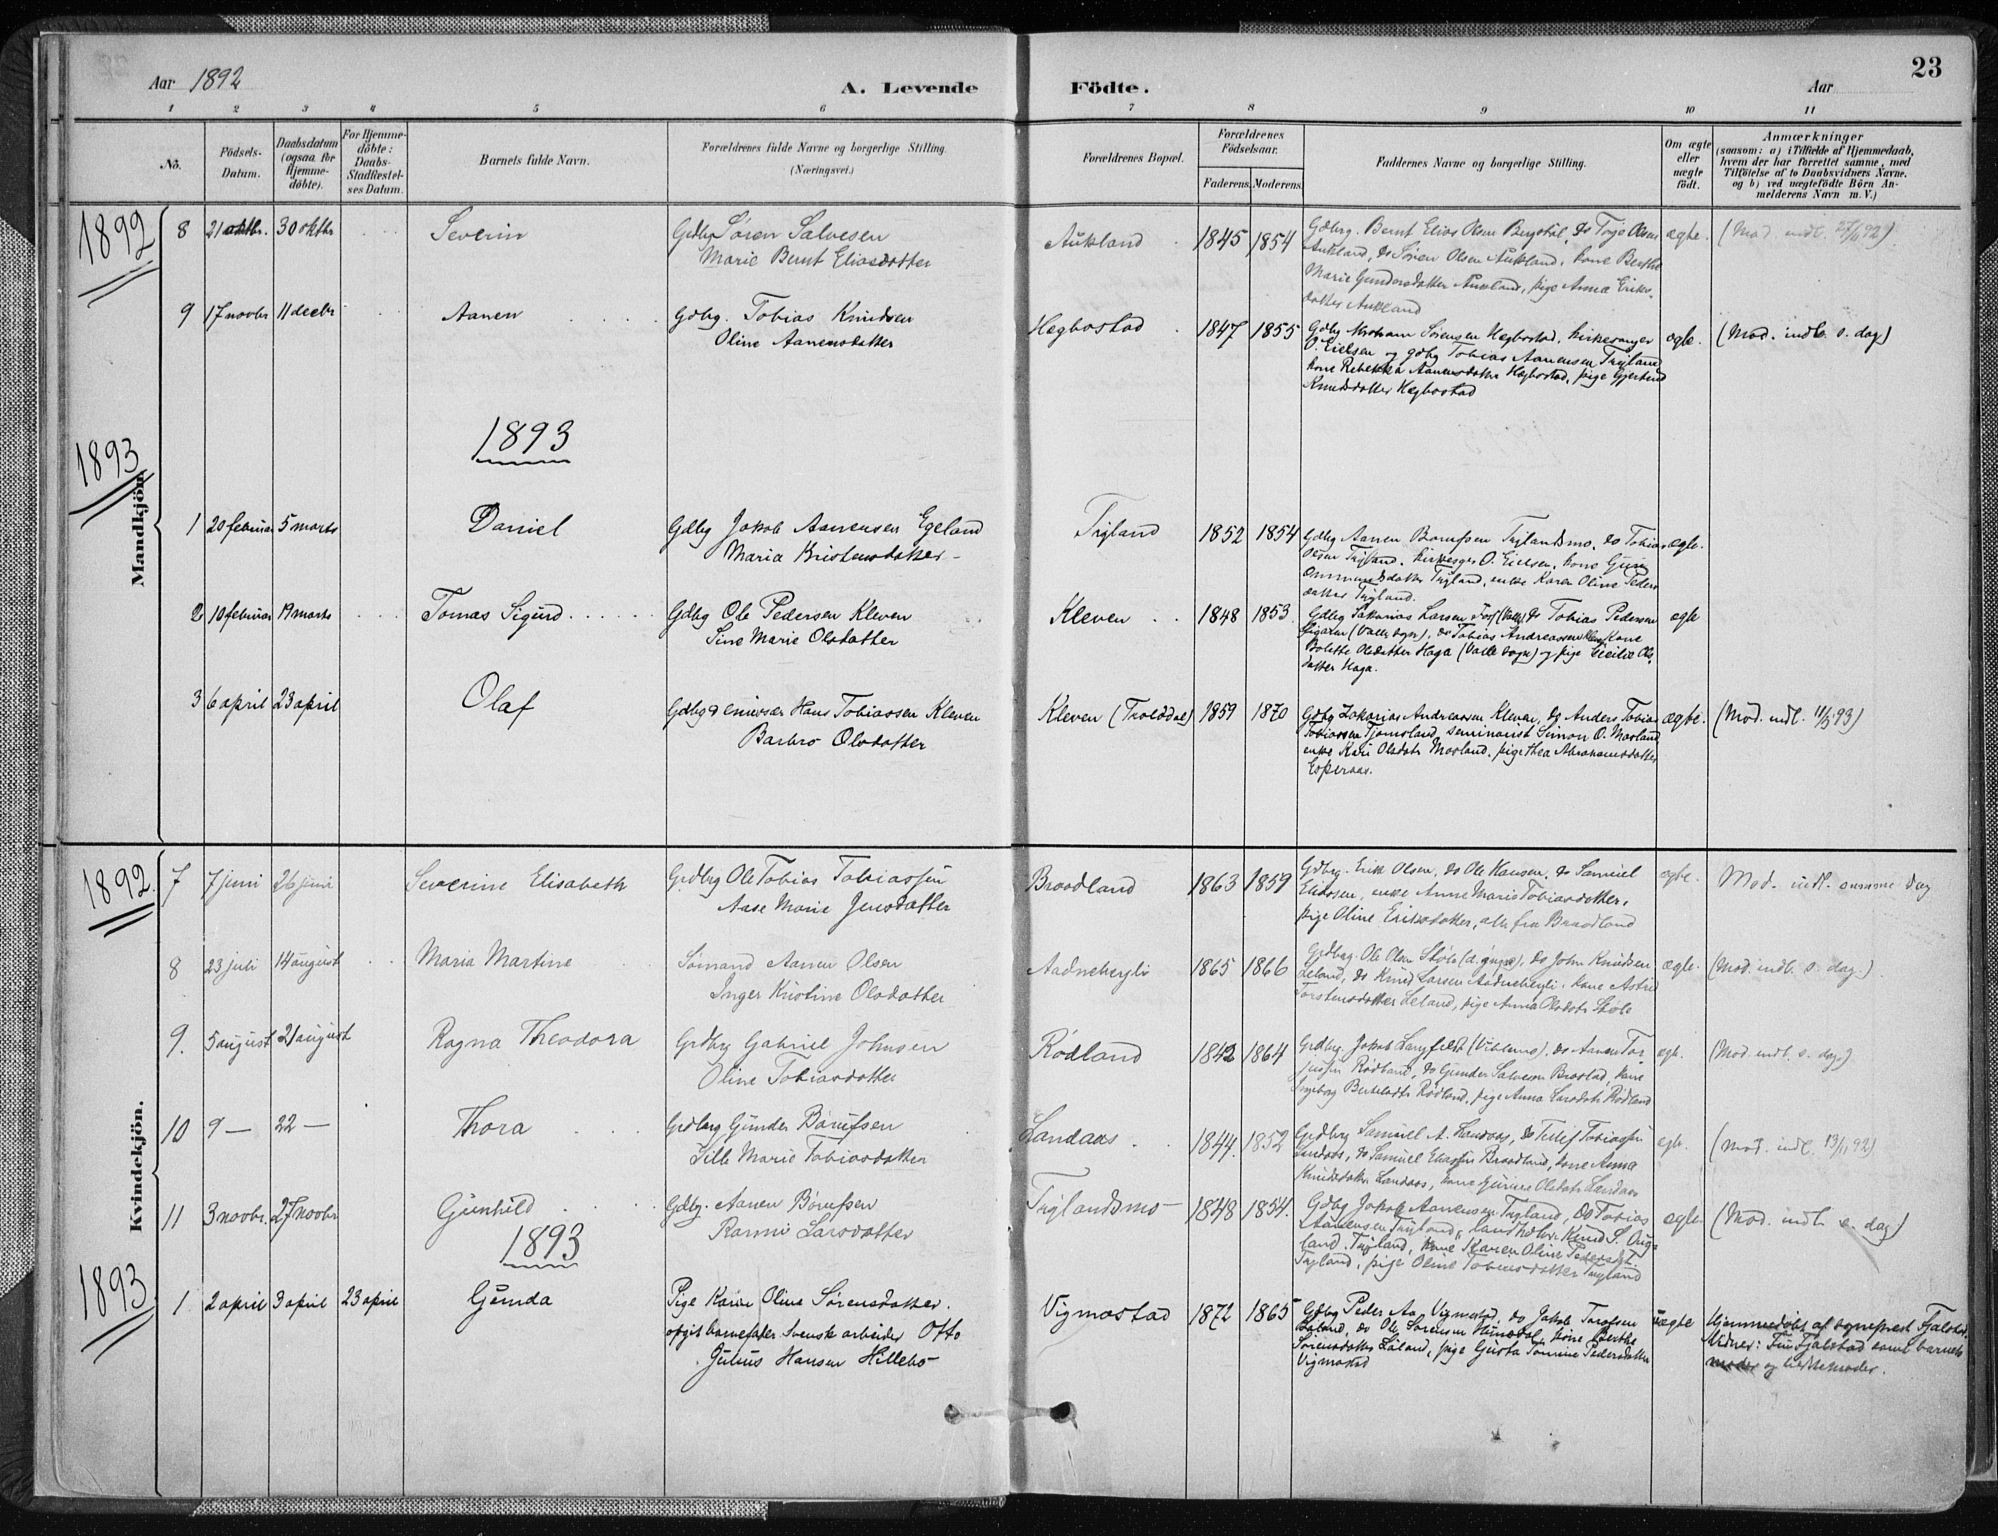 Aar 1892
A. Levende
Födte.
Aar
23
1 2 3 4 5 6 7 8 9 10 11
No.
Födsels-Datum.
Daabsdatum (ogsaa for Hjemme-döbte).
For Hjemme-döbte: Daabs-Stadfæstel-ses Datum.
Barnets fulde Navn.
Forældrenes fulde Navne og borgerlige Stilling. (Næringsvei.)
Forældrenes Bopæl.
Forældrenes Födselsaar.
Faderens. Moderens.
Faddernes Navne og borgerlige Stilling.
Om ægte eller uægte födt.
Anmærkninger
(saasom: a) i Tilfælde af Hjemmedaab,
hvem der har forrettet samme, med
Tilföielse af to Daabsvidners Navne.
og b) ved uægtefödte Börn An-
melderens Navn m. V.)
Mandkjön.
1892
8 21 oktbr. 30 oktbr Severin Gdbg Søren Salvesen Aukland 1845 1854 Gdbrg. Bernt Elias Olsen Bergstøl, do Terje Olsen ægte. (Mod. indl. 27/11 92)
Marie Bernt Eliasdatter Aukland, do Søren Olsen Aukland, kone Berthe
Marie Gundersdatter Aukland, pige Anna Eriks-
datter Aukland
9 17 novbr 11 decbr Aanen Gdbg. Tobias Knudsen Hegbostad 1847 1855 Gdbg Abraham Sørensen Hegbostad, kirkesanger ægte. (Mod. indl. s. dag)
Oline Aanensdatter O. Eielsen og gdbg Tobias Aanensen Tryland,
kone Rebekka Aanensdatter Hegbostad, pige Gjertrud
Knudsdatter Hegbostad
1893
1893
1 20 februar 5 marts Daniel Gdbg Jakob Aanensen Egeland Tryland 1852 1854 Gdbg Aanen Børufsen Trylandsmo, do Tobias ægte.
Maria Kristensdatter Olsen Tryland, kirkesgr O. Eielsen, kone Guri
datter Tryland, enke Karen Oline Peders
datter Tryland.
2 10 februar 19 marts Tomas Sigurd Gdbg Ole Pedersen Kleven Kleven 1848 1853 Gdbg Sakarias Larsen Foss (Valle), do Tobias Pedersen ægte
Sine Marie Olsdatter (Valle sogn), do Tobias Andreassen Kleven, kone
Bolette Olsdatter Haga (Valle sogn) og pige Cecilie Ols-
datter Haga.
3 6 april 23 april Olaf Gdbg Hans Tobiassen Kleven Kleven (Tolddal) 1859 1870 Gdbg Zakarias Andreassen Kleven, do Anders Tobias ægte. (Mod. indl. 11/5 93)
Barbro Olsdatter Tobiassen Tjomsland, seminarist Simon O. Mosland
enke Kari Olsdatr Mosland, pige Thea Abrahamsdatter
Esperaas.
Kvindekjön.
1892.
7 7 juni 26 juni Severine Elisabeth Grdbrg Ole Tobias Tobiassen Braadland 1863 1859 Grdbrg. Erik Olsen, do Ole Hansen, do Samuel ægte. Mod. indl. samme dag
Aase Marie Jensdatter Eliassen, enke Anne Marie Tobiasdatter,
pige Oline Eriksdatter, alle fra Braadland
8 23 juli 14 august Maria Martine Sömand Aanen Olsen Aadnebergli 1865 1866 Grdbrg. Ole Olsen Støle (d. yngre), do John Knudsen ægte. (Mod. indl. s. dag.)
Inger Kristine Olsdatter Leland, do Knud Larsen Aadnebergli, kone Astrid
Torstensdatter Leland, pige Anna Olsdatr Støle
9. 5 august 21 august Ragna Theodora Grdbrg Gabriel Johnsen Rödland 1842 1864 Grdbrg. Jakob (Vibbems), do Aanen Ter- ægt. (Mod. indl. s. dag.)
Oline Tobiasdatter jussen Rödland, do Gunder Salvesen Brøstad, kone
Ingeborg Rödland, pige Anna Larsdatr Rödland
10 9 — 22 — Thora Grdbrg Gunder Börufsen Landaas 1844. 1852 Grdbrg Samuel A. Landaas, do Tellef Tobiassen ægt. (Mod. indl. 13/11 92)
Sille Marie Tobiasdatter Landaas, do Samuel Eliassen Braadland, kone Anna
Knudsdatter Landaas, kone Gurine Olsdatr Landaas
11 3 novbr. 27 novbr Gunhild Gdbg. Aanen Börufsen Trylandsmo 1848 1854. Gdbg Jakob Aanensen Tryland, do Tobias ægte (Mod. indl. s. dag)
Rannei Larsdatter Aanensen Tryland, landhdlr. Knud S. Aug-
land, Tryland, kone Karen Oline Pedersdt.
Tryland, pige Oline Tobiasdatter Tryland
1893
1893
1 2 april 3 april 23 april Gunda Pige Karen Oline Sörensdatter. Vigmostad 1872 1865 Gdbg Peder Aa. Vigmostad, do Jakob Torgersen uægte Hjemmedöbt af sogneprest Fjalstad.
opgit barnefader Svensk arbeider Otto do Ole Sørensen Hunsdal, kone Berthe Vidner: Fru Fjalstad samt barnets
Julius Hansen Hillebo Sörensdatter Løland, pige Gusta Tomine Pedersdatter moder og bestemoder.
Vigmostad